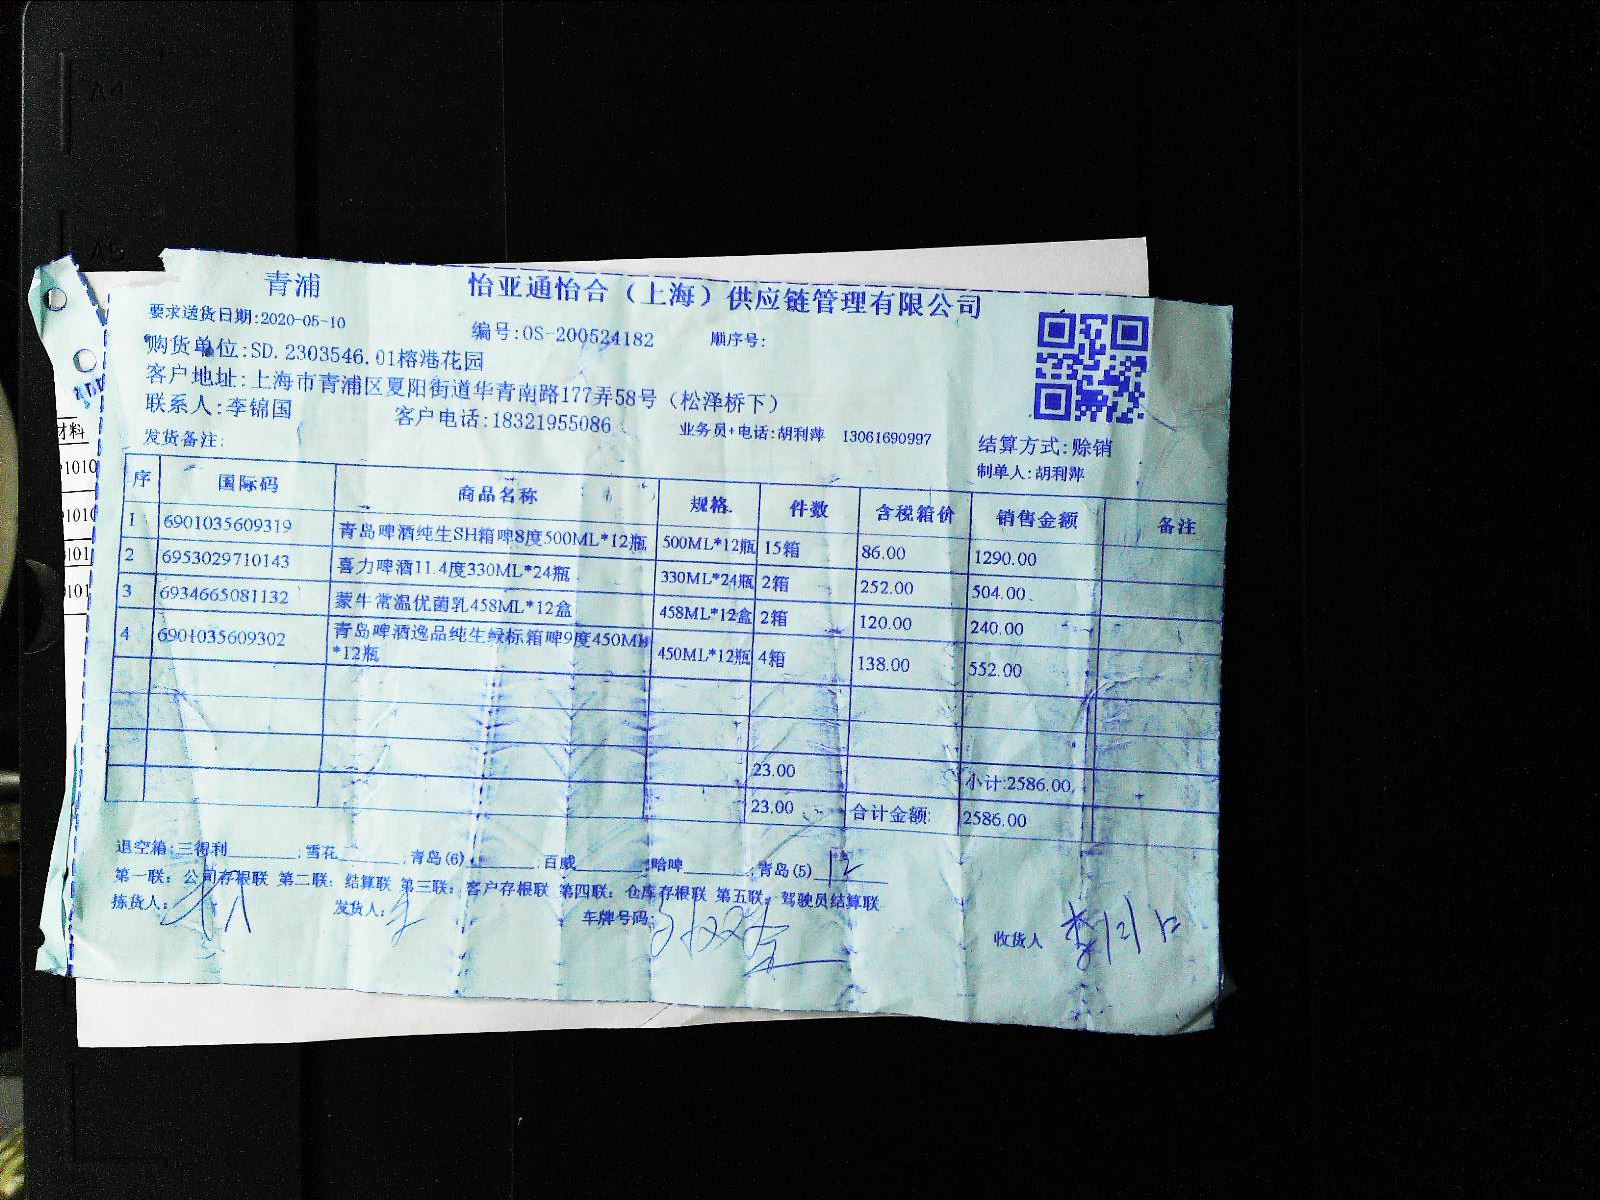 A4
A5
青浦
怡亚通怡合（上海）供应链管理有限公司
要求送货日期:2020-05-10
编号:OS-200524182 顺序号:
购货单位:SD.2303546.01榕港花园
客户地址:上海市青浦区夏阳街道华青南路177弄58号（松泽桥下）
联系人:李锦国 客户电话:18321955086 业务员+电话:胡利萍 13061690997 结算方式:赊销
发货备注: 制单人:胡利萍
序 国际码 商品名称 规格 件数 含税箱价 销售金额 备注
1 6901035609319 青岛啤酒纯生SH箱啤8度500ML*12瓶 500ML*12瓶 15箱 86.00 1290.00
2 6953029710143 喜力啤酒11.4度330ML*24瓶 330ML*24瓶 2箱 252.00 504.00
3 6934665081132 蒙牛常温优菌乳458ML*12盒 458ML*12盒 2箱 120.00 240.00
4 6901035609302 青岛啤酒逸品纯生绿标箱啤9度450ML
*12瓶 450ML*12瓶 4箱 138.00 552.00
23.00 小计:2586.00
23.00 合计金额: 2586.00
退空箱:三得利 ;雪花 ,青岛(6) ,百威 ,哈啤 ,青岛(5) 12
第一联：公司存根联 第二联：结算联 第三联：客户存根联 第四联：仓库存根联 第五联：驾驶员结算联
拣货人: 发货人: 车牌号码: 收货人
材料
1010
1010